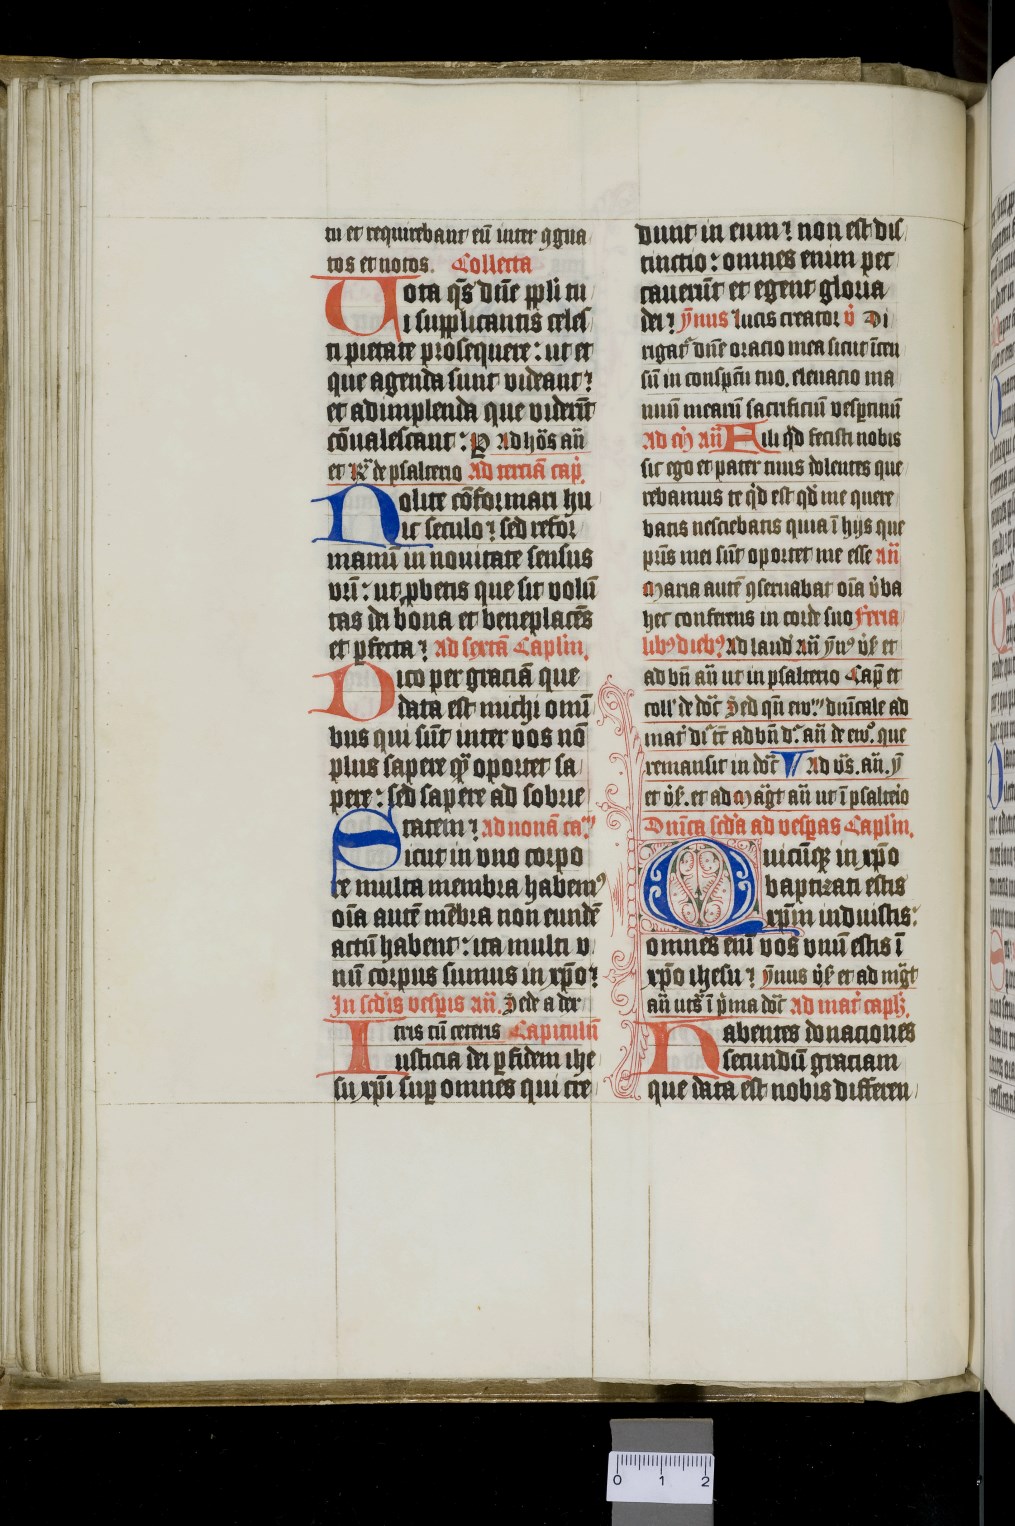 tu et requirebant eū inter ꝯgna
tos et notos. Collecta
Uota q̄s dn̄e ppl̄i tu
i supplicantis celes
ti pietate prosequere: ut et
que agenda sunt videant ⁊
et adimplenda que viderūt
cōualescant: P Ad hōs an̄
et R̄ de psalterio Ad terciā cap̄.
Nolite cōformari hu
ic seculo ⁊ sed refor
manū in nouitate sensus
vr̄i: ut ꝓbetis que sit volū
tas dei bona et beneplacēs
et ꝑfecta ⁊ ad sextā Caplm̄.
Dico per graciā que
data est michi omī
bus qui sūt inter vos nō
plus sapere qᷓ oportet sa
pere: sed sapere ad sobrie
tatem ⁊ ad nonā ca.
Sicut in vno corpo
re multa membra habemꝰ
oīa autē mēbra non eundē
actū habent: ita multi v
nū corpus sumus in xp̄o ⁊
In sc̄dis vesp̄is an̄. Sede a dex
tris cū ceteris Capitulū
Iusticia dei ꝑ fidem ihe
su xp̄i suꝑ omnes qui cre
dunt in eum ⁊ non est dis
tinctio: omnes enim pec
cauerūt et egent gloria
dei ⁊ ȳnus Lucis creator v̄ Di
rigat᷑ dn̄e oracio mea sicut īcen
sū in conspc̄tu tuo. eleuacio ma
nuū mearū sacrificiū vesp̄tinū
Ad m̄ an̄ Fili qͥd fecisti nobis
sic ego et pater tuus dolentes que
rebamus te qͥd est qd̄ me quere
batis nesciebatis quia ī hijs que
pr̄is mei sūt oportet me esse an̄
Maria autē ꝯseruabat oīa v̄ba
hec conferens in corde suo Feria
libꝰ diebꝰ Ad laud̄ an̄ ȳnꝰ v̄s̄ et
ad bn̄ an̄ ut in psalterio Cap̄ et
coll̄ de dōc̄ Sed qn̄ ew̄ᵐ dn̄icale ad
mat̄ dr̄ tc̄ ad bn̄ dr̄ an̄ de ewᵒ. que
remansit in dōc̄ Ad v̄s. an̄. ȳ
et v̄s̄. et ad Maḡt an̄ ut ī psalterio
Dnīca sc̄da ad vesp̄as Caplm̄.
Quicūqꝫ in xp̄o
baptizati estis
xp̄m induistis:
omnes enī vos vnū estis ī
xp̄o ihesu ⁊ ȳnus v̄s̄ et ad mḡt
an̄ uts̄ ī pͥma dōc̄ ad mat̄ capl̄.
Habentes donaciones
secundū graciam
que data est nobis differen